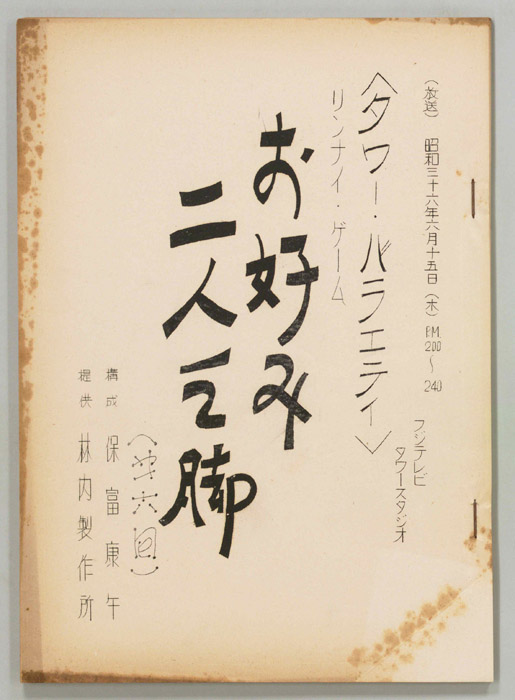 (放送) 昭和三十六年六月十五日(木) P.M. 200〜240
フジテレビ
タワースタジオ
〈タワー・バラエティ〉
リンナイ・ゲーム
お好み
二人三脚
(第六回)
構成 保富康午
提供 林内製作所